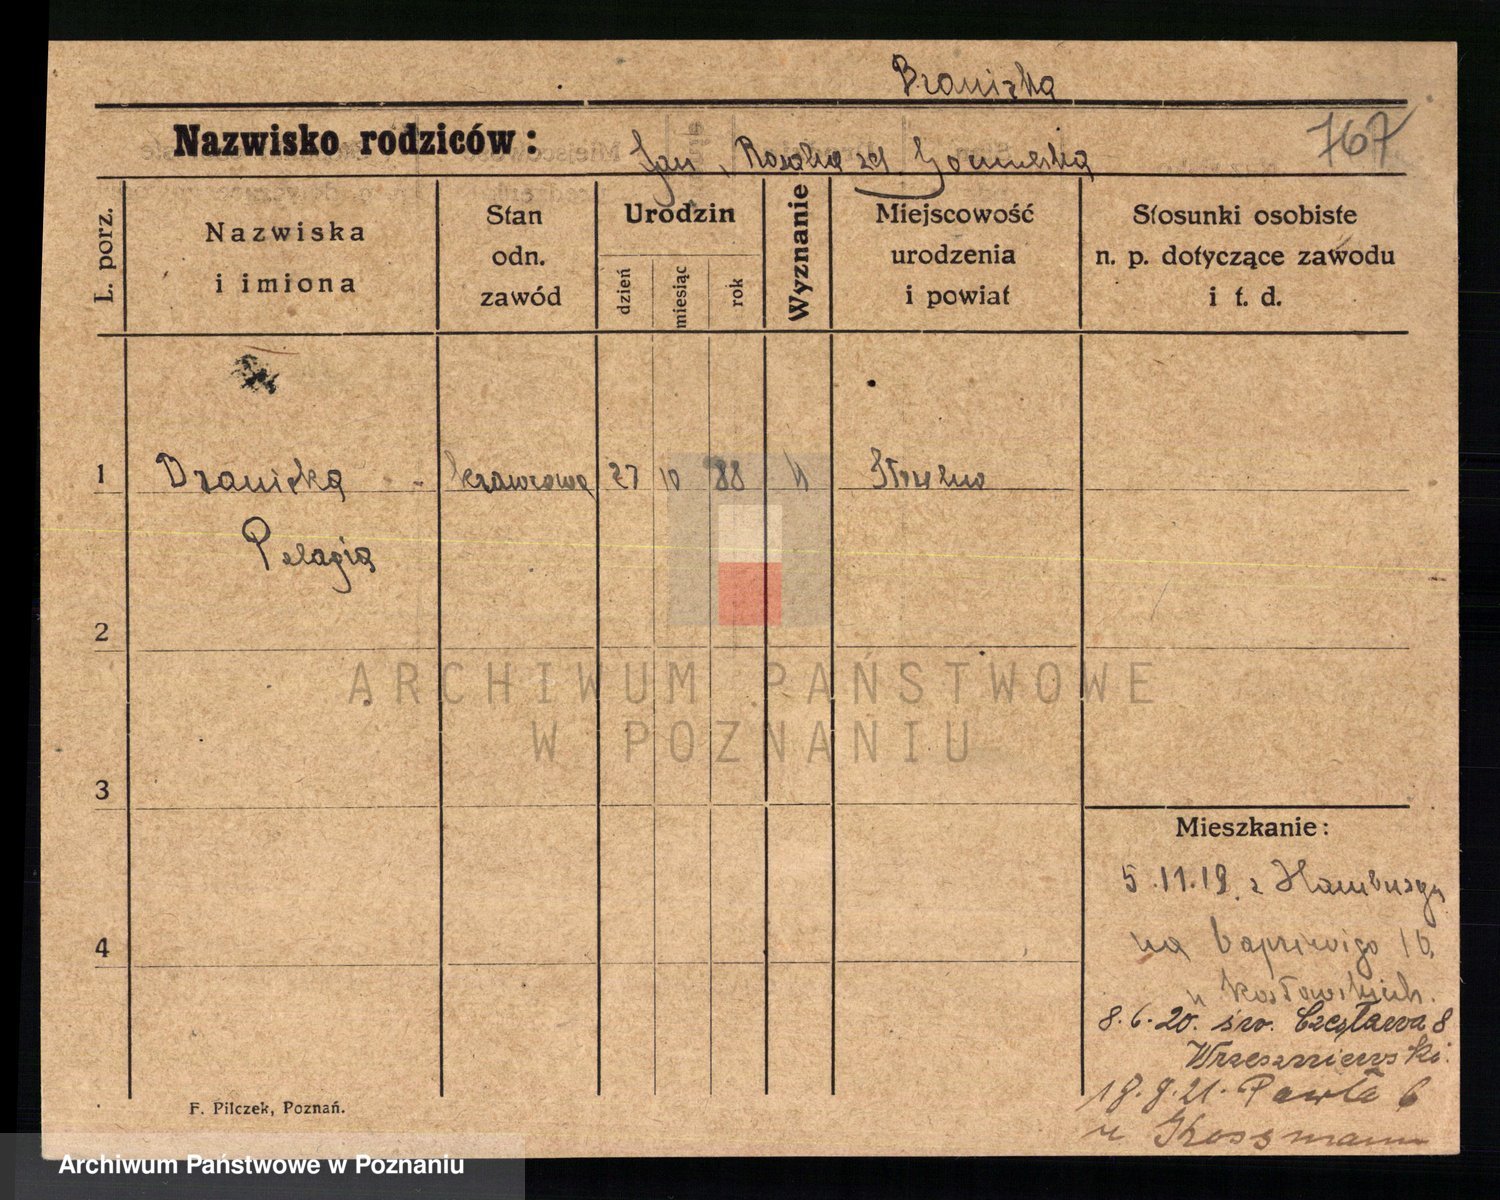 Nazwisko rodziców:
Jan, Rozalia
767
L. porz.
Nazwiska
i imiona
Stan
odn.
zawód
Urodzin
dzień
miesiąc
rok
Wyznanie
Miejscowość
urodzenia
i powiat
Stosunki osobiste
n. p. dotyczące zawodu
i t. d.
1
krawcowa
27
10
88
Strzelno
Pelagia
2
ARCHIWUM PAŃSTWOWE
W POZNANIU
3
Mieszkanie:
5.11.19. z Hamburga
4
na 16.
u Kozłowskich.
8.6.20. św. Czesława 8
Wrzeszniewski.
Pawła 6
F. Pilczek, Poznań.
u Grossmann
Archiwum Państwowe w Poznaniu